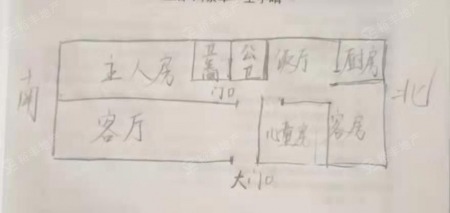 主人房
卫
公卫
饭厅
厨房
门口
南
北
客厅
儿童房
客房
大门口